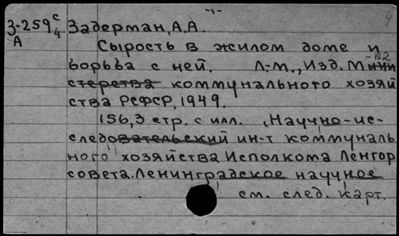 -1-
З-259 с/4 Задерман, А.А.
А
Сырость в жилом доме и
борьба с ней. Л.-М., Изд. Мини
стерства коммунального хозяй
ства РСФСР, 1949.
156,3 стр. с илл. „Научно-ис-
следовательский ин-т коммуналь
ного хозяйства Исполкома Ленгор
совета. Ленинградское научное
см. след. карт.